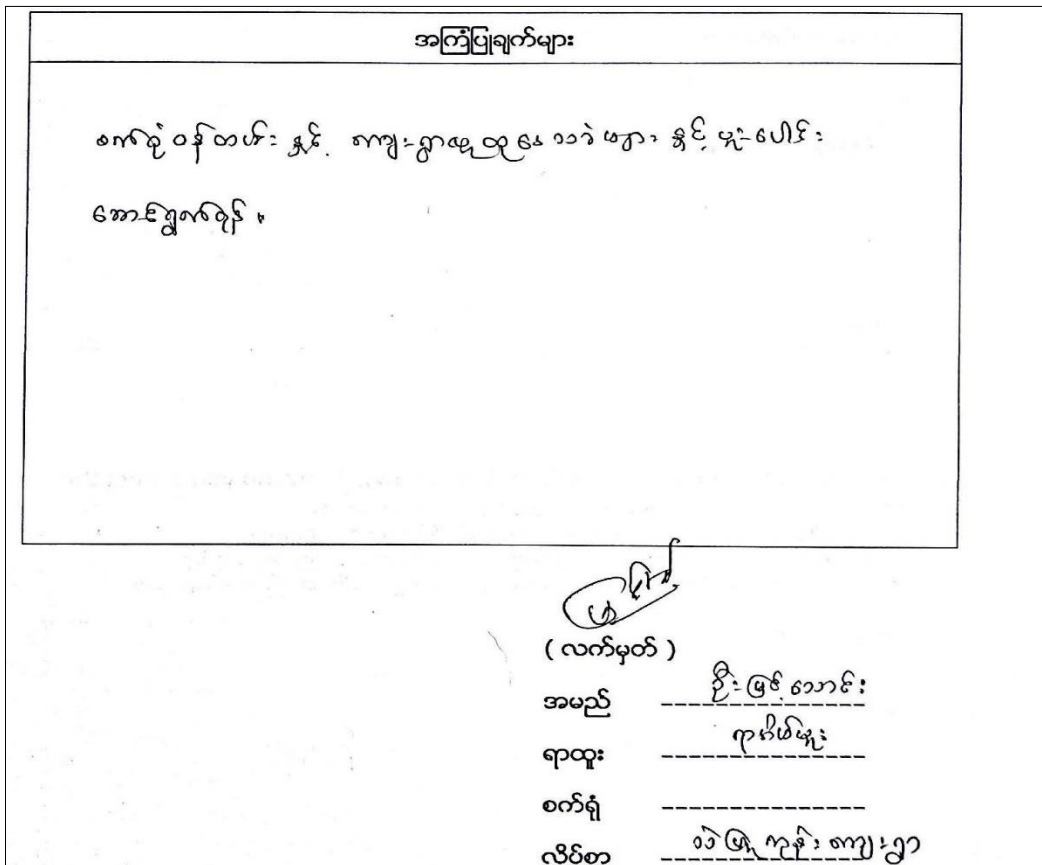 အကြံပြုချက်များ
စက်ရုံ ဝန်ထမ်း နှင့် ကျေးရွာလူထုနေ သားများ နှင့် ပူးပေါင်း
ဆောင်ရွက်ရန်။
( လက်မှတ် )
အမည် ဦးမြင့်သောင်း
ရာထူး ရာအိမ်မှူး
စက်ရုံ
လိပ်စာ ဝဲမြို့ကုန်းကျေးရွာ